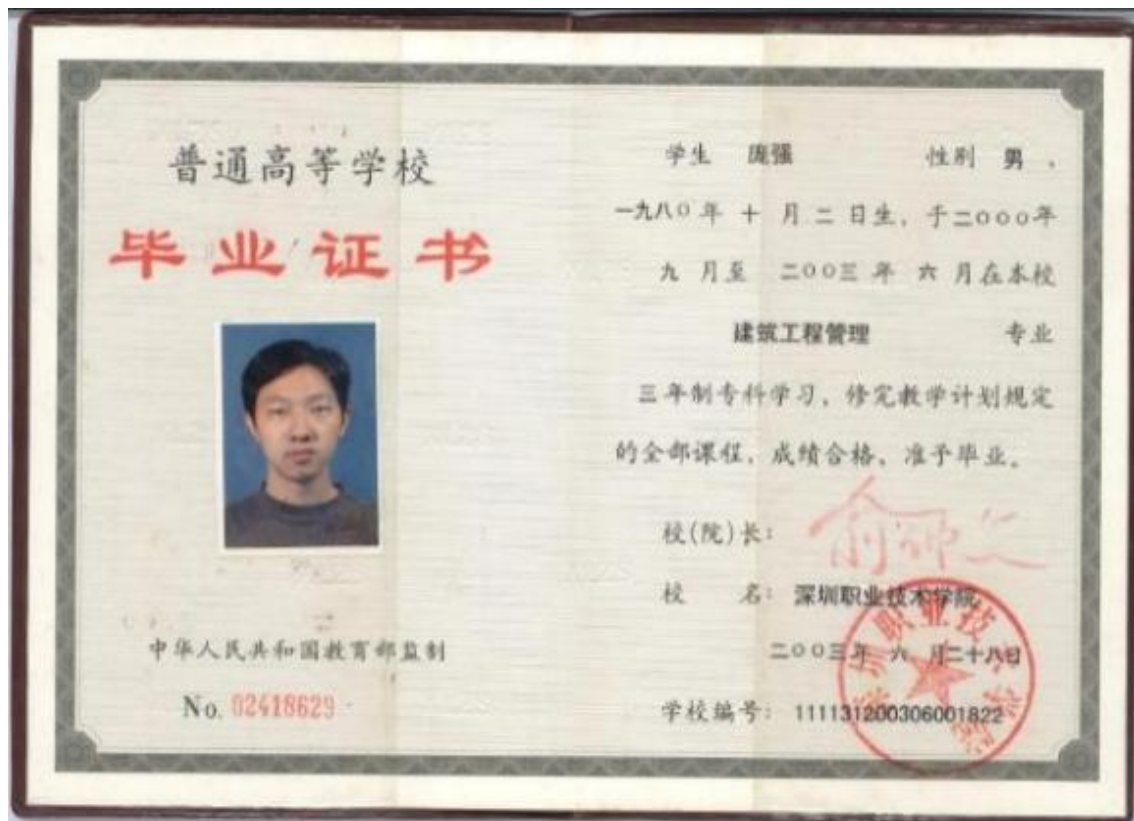 普通高等学校
毕业证书
中华人民共和国教育部监制
No. 02418629
学生 庞强 性别 男，
一九八〇年 十 月 二 日生，于二〇〇〇年
九 月至 二〇〇三 年 六 月在本校
建筑工程管理 专业
三年制专科学习，修完教学计划规定
的全部课程，成绩合格，准予毕业。
校(院)长：
校 名：深圳职业技术学院
二〇〇三年 六 月二十八日
学校编号：111131200306001822
深圳职业技术学院